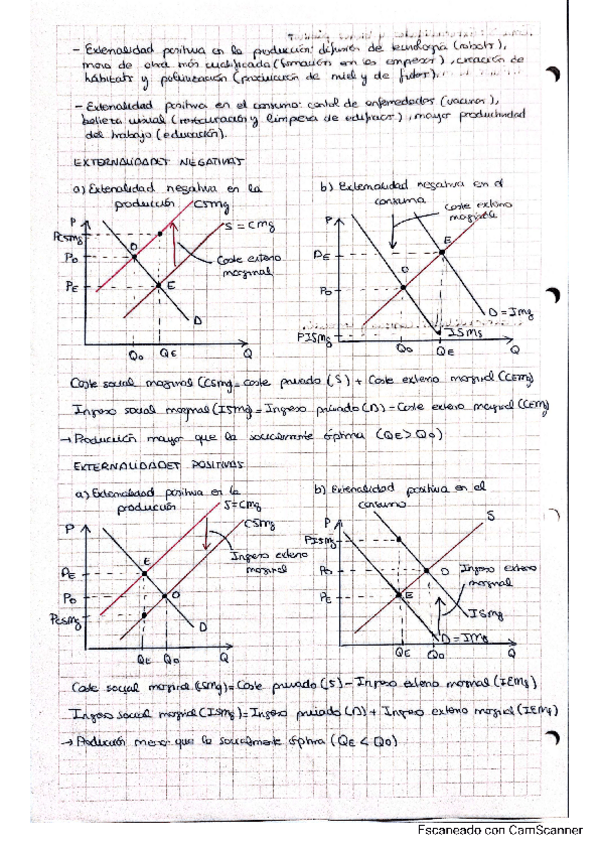 - Externalidad positiva en la producción: difusión de tecnología (robots),
mano de obra más cualificada (formación en las empresas), creación de
hábitats y polinización (producción de miel y de frutos).
- Externalidad positiva en el consumo: control de enfermedades (vacunas),
belleza visual (restauración y limpieza de edificios), mayor productividad
del trabajo (educación).
EXTERNALIDADES NEGATIVAS
a) Externalidad negativa en la
producción
CSmg
P
S = CMg
PCSMg
O
PO
Coste externo
marginal
PE
E
D
QO
QE
Q
b) Externalidad negativa en el
consumo
Coste externo
marginal
P
E
PE
O
PO
D = IMg
PISMg
ISMg
QO
QE
Q
Coste social marginal (CSmg = coste privado (S) + Coste externo marginal (CEMg)
Ingreso social marginal (ISMg) = Ingreso privado (D) - Coste externo marginal (CEMg)
→ Producción mayor que la socialmente óptima (QE > QO)
EXTERNALIDADES POSITIVAS
a) Externalidad positiva en la
producción
S = CMg
CSMg
P
E
Ingreso externo
marginal
PE
PO
O
PCSMg
D
QE
QO
Q
b) Externalidad positiva en el
consumo
S
P
PISMg
PO
O
Ingreso externo
marginal
PE
E
ISMg
D = IMg
QE
QO
Q
Coste social marginal (SMg) = Coste privado (S) - Ingreso externo marginal (IEMg)
Ingreso social marginal (ISMg) = Ingreso privado (D) + Ingreso externo marginal (IEMg)
→ Producción menor que la socialmente óptima (QE < QO)
Escaneado con CamScanner